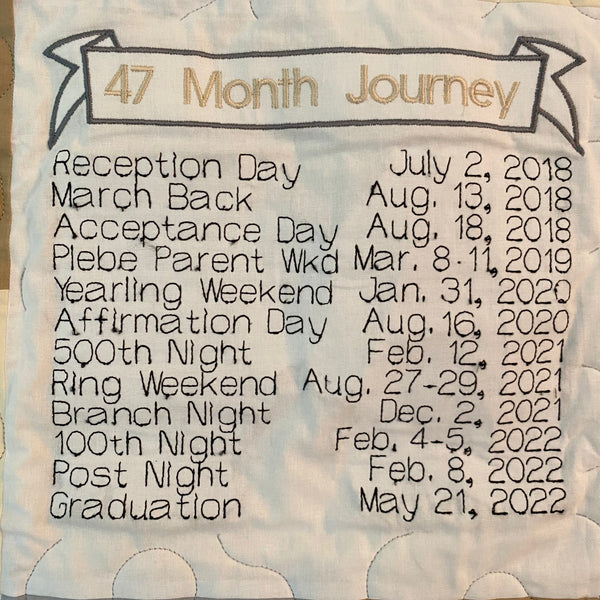 47 Month Journey
Reception Day July 2, 2018
March Back Aug. 13, 2018
Acceptance Day Aug. 18, 2018
Plebe Parent Wkd Mar. 8-11, 2019
Yearling Weekend Jan. 31, 2020
Affirmation Day Aug. 16, 2020
500th Night Feb. 12, 2021
Ring Weekend Aug. 27-29, 2021
Branch Night Dec. 2, 2021
100th Night Feb. 4-5, 2022
Post Night Feb. 8, 2022
Graduation May 21, 2022